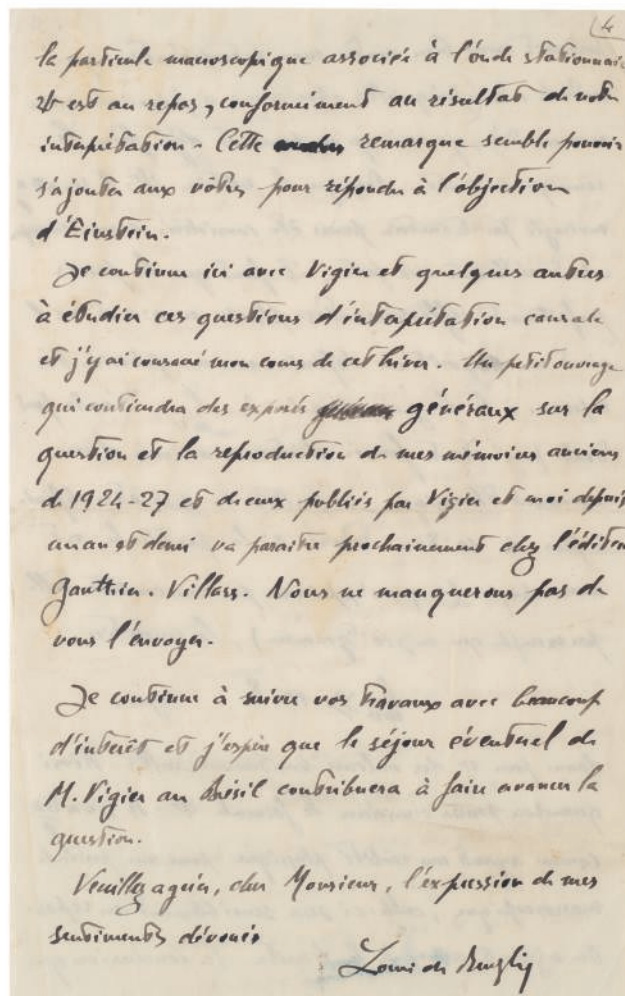 4
la particule macroscopique associée à l'onde stationnaire
ψ est au repos, conformément au résultat de votre
interprétation. Cette remarque semble pouvoir
s'ajouter aux vôtres pour répondre à l'objection
d'Einstein.
Je continue ici avec Vigier et quelques autres
à étudier ces questions d'interprétation causale
et j'y ai consacré mon cours de cet hiver. Un petit ouvrage
qui contiendra des exposés généraux sur la
question et la reproduction de mes mémoires anciens
de 1924-27 et de ceux publiés par Vigier et moi depuis
un an et demi va paraitre prochainement chez l'éditeur
Gauthier-Villars. Nous ne manquerons pas de
vous l'envoyer.
Je continue à suivre vos travaux avec beaucoup
d'intérêt et j'espère que le séjour éventuel de
M. Vigier au Brésil contribuera à faire avancer la
question.
Veuillez agréer, cher Monsieur, l'expression de mes
sentiments dévoués
Louis de Broglie